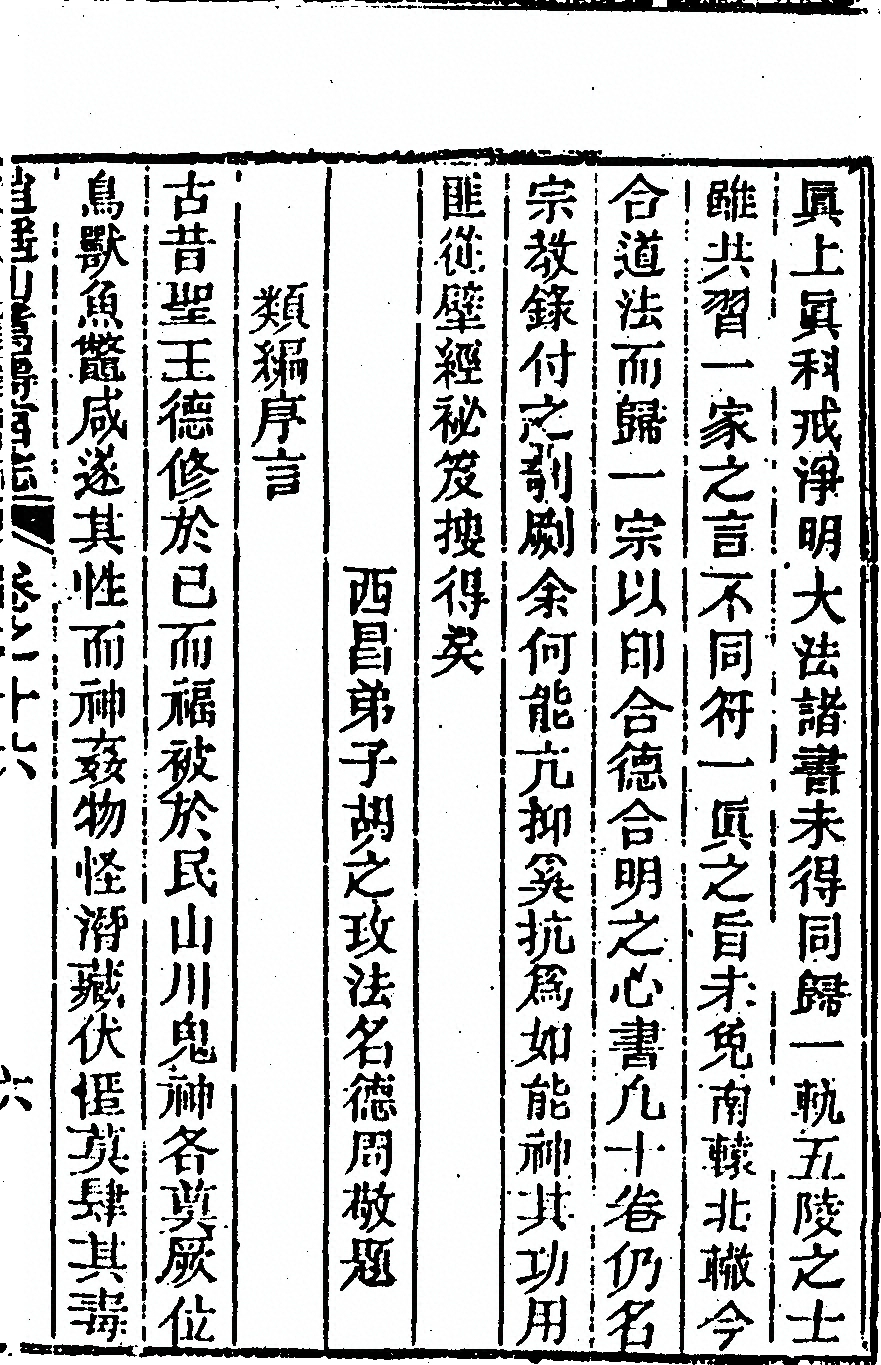 眞上眞科戒淨明大法諸書未得同歸一軌五陵之士
雖共習一家之言不同符一眞之旨未免南轅北轍今
合道法而歸一宗以印合德合明之心書凡十卷仍名
宗教錄付之剞劂余何能亢抑奚抗爲如能神其功用
匪從壁經祕笈搜得矣
西昌弟子胡之玫法名德周敬題
類編序言
古昔聖王德修於已而福被於民山川鬼神各奠厥位
鳥獸魚鼈咸遂其性而神姦物怪潛藏伏匿莫肆其毒
逍遙山萬壽宮志 卷之十六 六